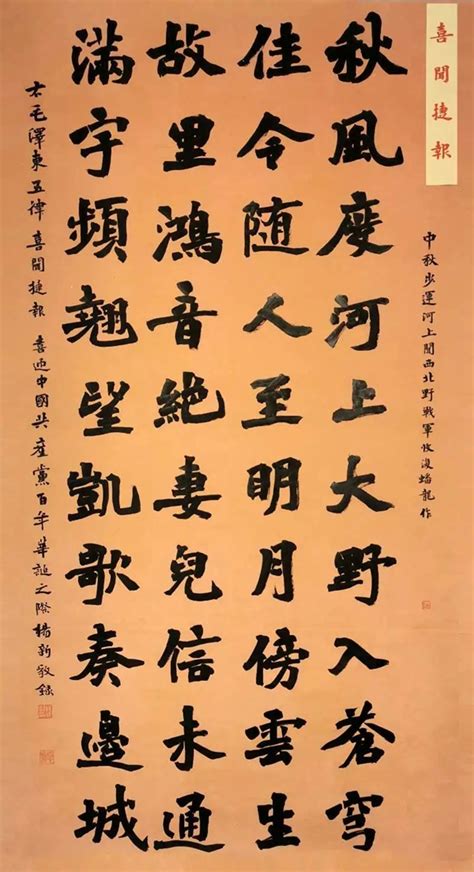 喜聞捷報
中秋步運河上聞西北野戰軍收復蟠龍作
秋風度河上大野入蒼穹
佳令随人至明月傍雲生
故里鴻音絶妻兒信未通
滿宇頻翹望凱歌奏邊城
毛澤東五律喜聞捷報 喜迎中國共產黨百年華誕之際楊新敬錄